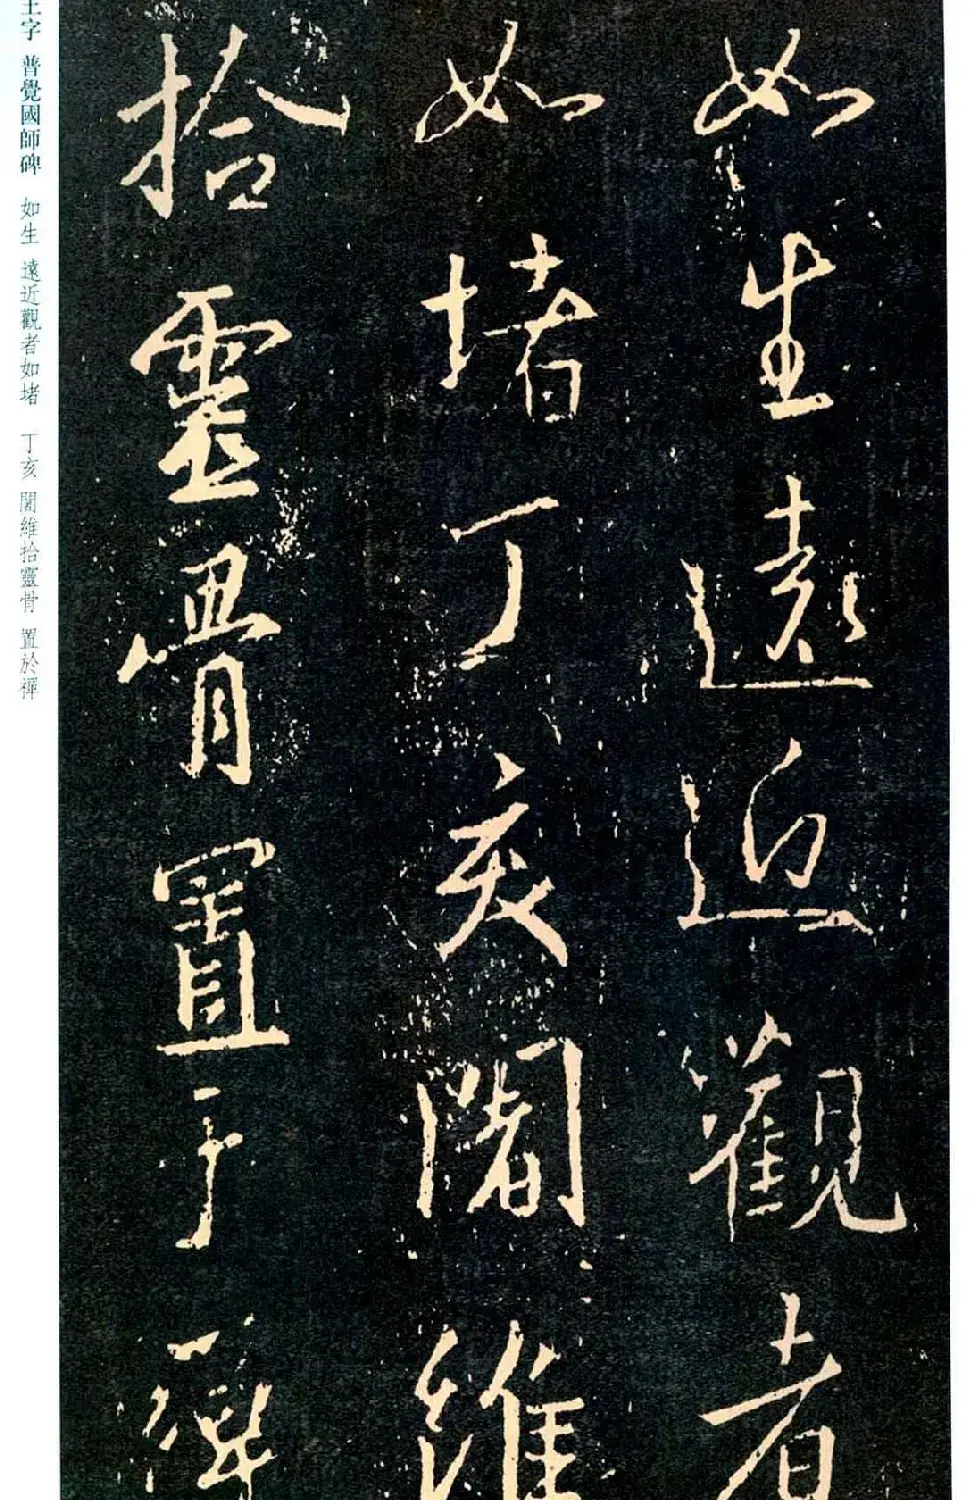 如生遠近觀者
如堵丁亥闍維
拾靈骨置于禪
王字 普覺國師碑 如生 遠近觀者如堵 丁亥 闍維拾靈骨 置於禪